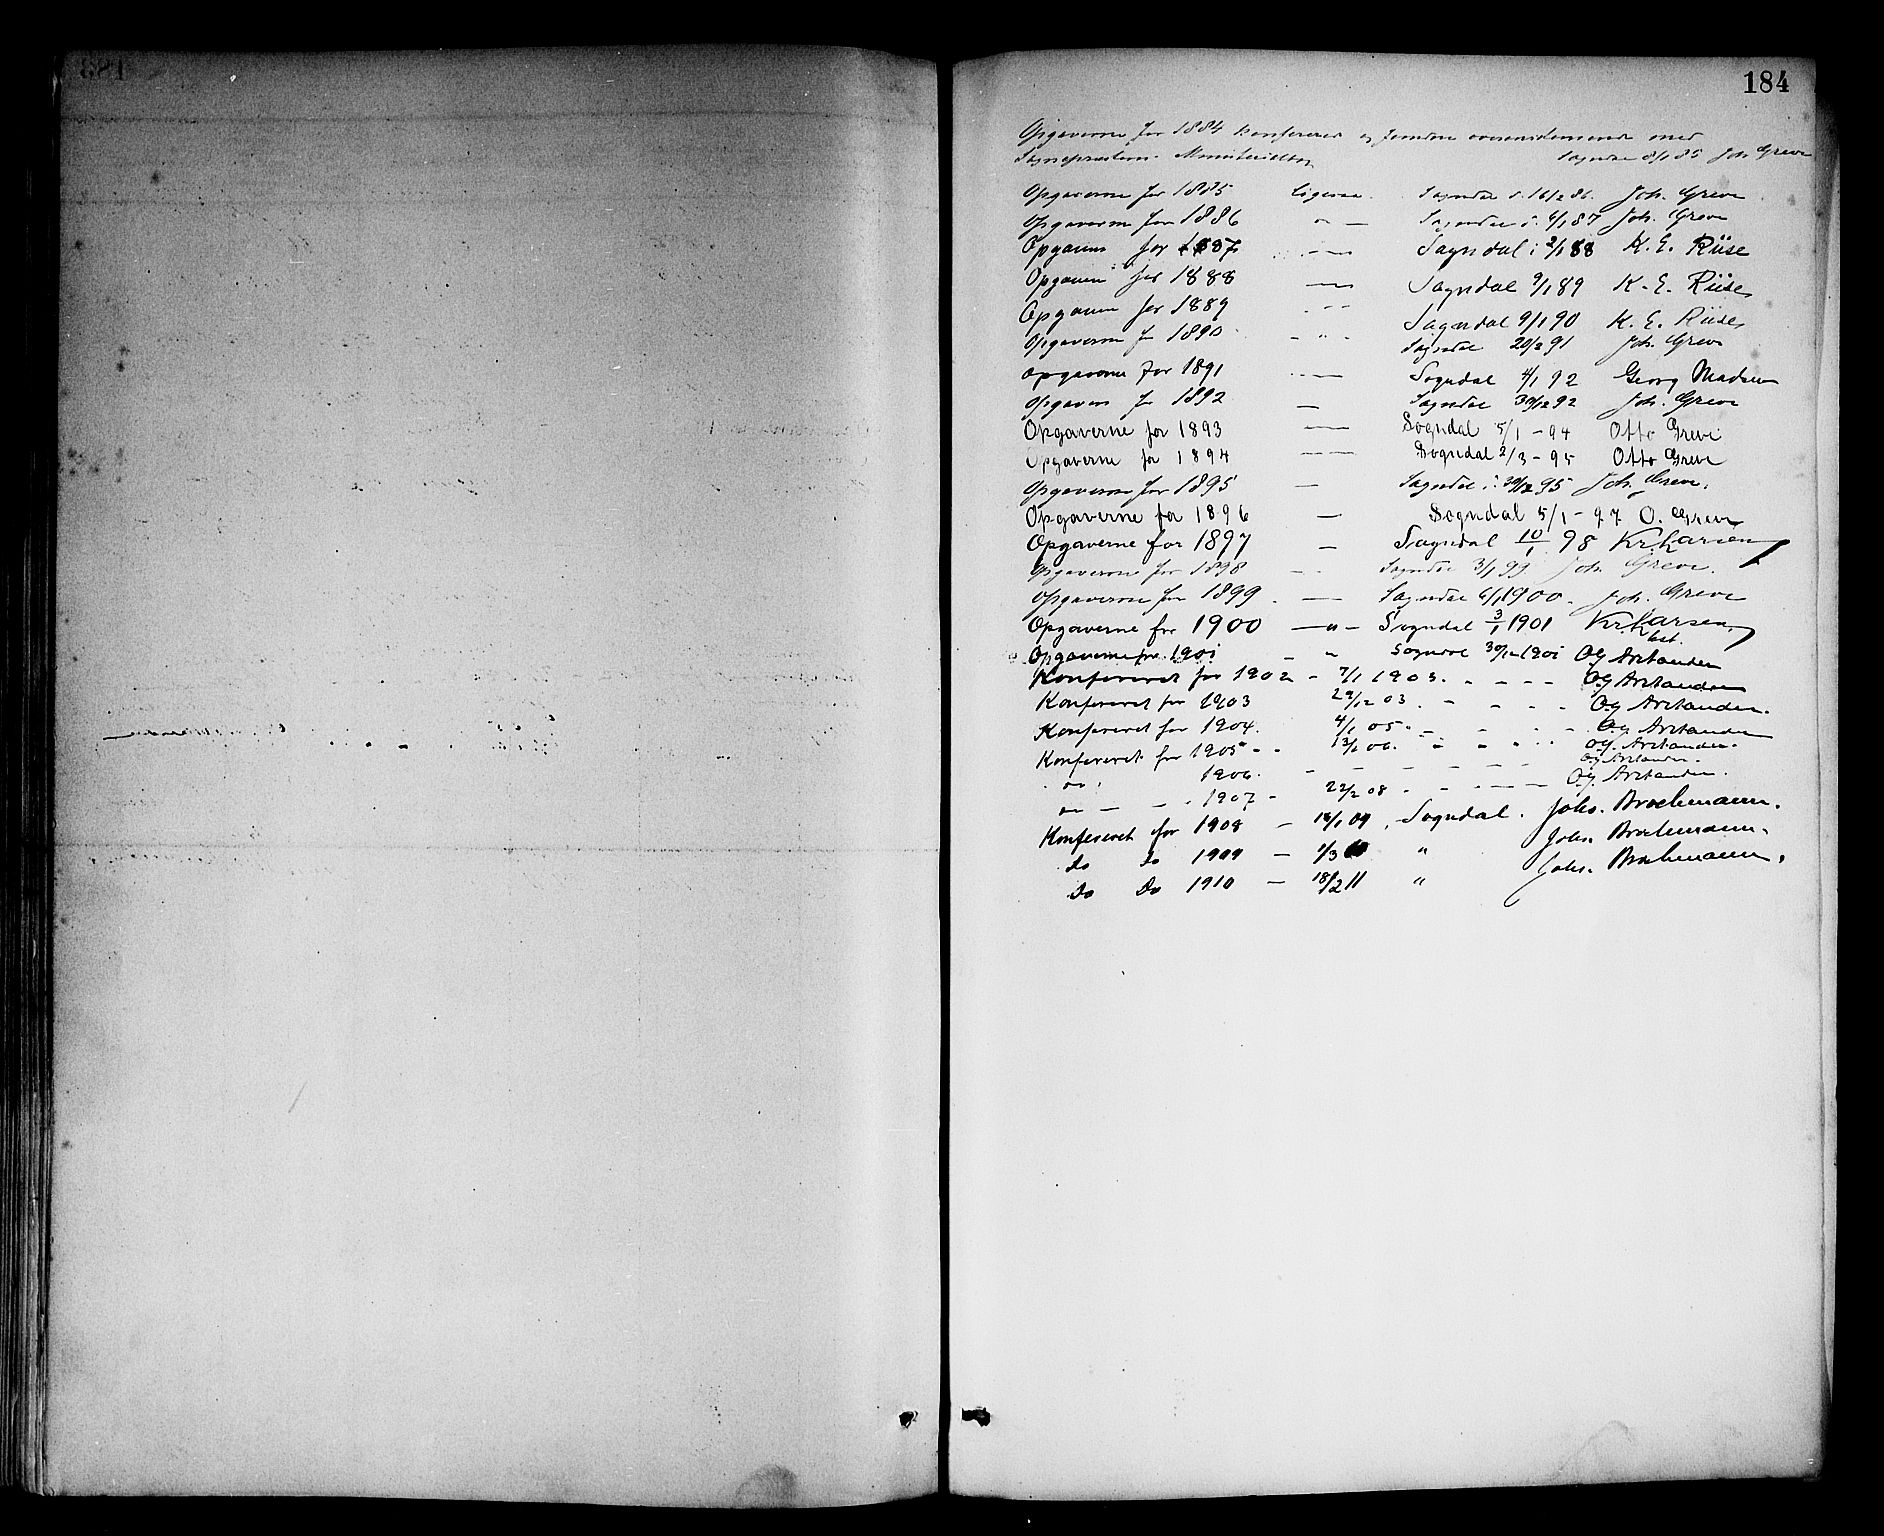 184
Opgaverne for 1884 konfereret og fundne overensstemmende med
Sognepræstens Ministerialbog Sogndal 8/1 85 Joh. Greve
Opgaverne for 1885 Ligesaa Sogndal d. 16/2 86. Joh. Greve
Opgaverne for 1886 " — Sogndal d. 4/1 87 Joh. Greve
Opgavern for 1887 — " — Sogndal d 2/1 88 K. E. Riise
Opgavern for 1888 — Sogndal 9/1 89 K. E. Riise
Opgavern for 1889 " Sogndal 9/1 90 K. E. Riise
Opgaverne for 1890 - " - Sogndal 20/2 91 Joh. Greve
Opgaverne for 1891 — Sogndal 4/1 92 Georg Madsen
Opgaverne for 1892 — Sogndal 30/12 92 Joh. Greve
Opgaverne for 1893 — Sogndal 5/1 - 94 Otto Greve
Opgaverne for 1894 — Sogndal 2/3 - 95 Otto Greve
Opgaverne for 1895 — Sogndal d. 30/12 95 Joh. Greve.
Opgaverne for 1896 — Sogndal 5/1 - 97 O. Greve
Opgaverne for 1897 — Sogndal 10/1 98 Kr. Larsen
Opgaverne for 1898 — Sogndal 3/1 99 Joh. Greve.
Opgaverne for 1899. — Sogndal 6/1 1900. Joh. Greve
Opgaverne for 1900 — " — Sogndal 3/1 1901 Kr. Larsen
kst.
Opgaverne for 1901 - " Sogndal 30/12 1901 Og Arstander
Konfereret for 1902 - 7/1 1903. - - - - Og Arstander
Konfereret for 1903 29/12 03. - - - - Og Arstander.
Konfereret for 1904. 4/1 05. - - - - Og Arstander
Konfereret for 1905 - - 13/1 06. - - - - Og. Arstander.
" 1906. - - - - - - Og Arstander.
" — - - 1907 - 22/2 08 - - - - Og. Arstander.
Konfereret for 1908 — 18/1 09. Sogndal. Johs. Brochmann.
Do Do 1909 — 1/3 10 " Johs. Brochmann.
Do Do 1910 — 18/2 11 " Johs. Brochmann.